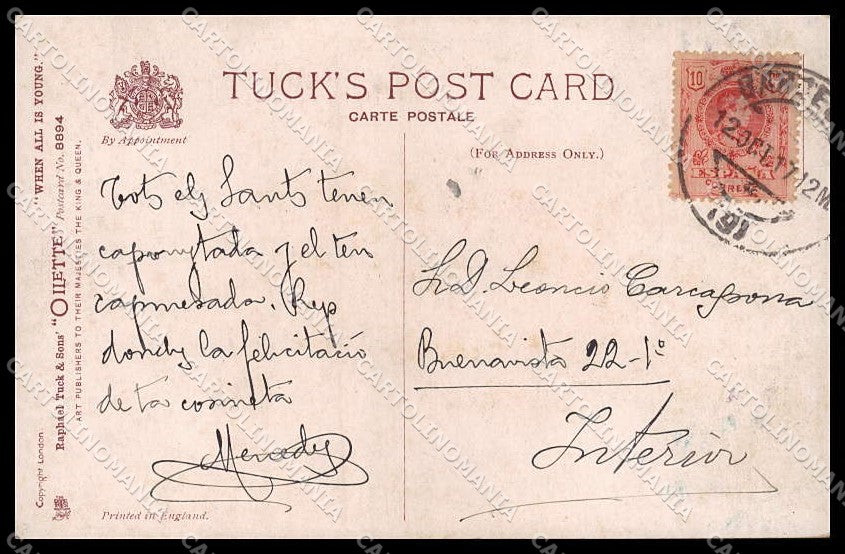 "WHEN ALL IS YOUNG."
Raphael Tuck & Sons' "OILETTE" Postcard No. 8894
ART PUBLISHERS TO THEIR MAJESTIES THE KING & QUEEN.
Copyright London.
By Appointment
TUCK'S POST CARD
CARTE POSTALE
(FOR ADDRESS ONLY.)
Tots els Sants tenen
capvuytada y el teu
capmesada. Rep
donchs la felicitació
de ta cosineta
Mercedes
Printed in England.
10
12
17 12M
(9)
D. Leoncio Carcassona
Buenavista 22-1º
Interior
CARTOLINOMANIA